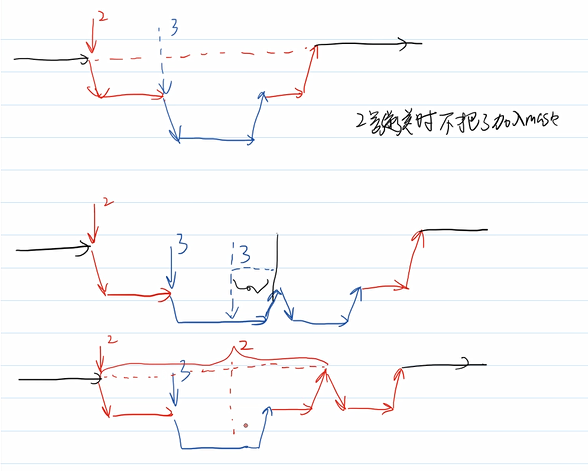 2
3
2号类时不把3加入mask
2
3
3
2
2
3